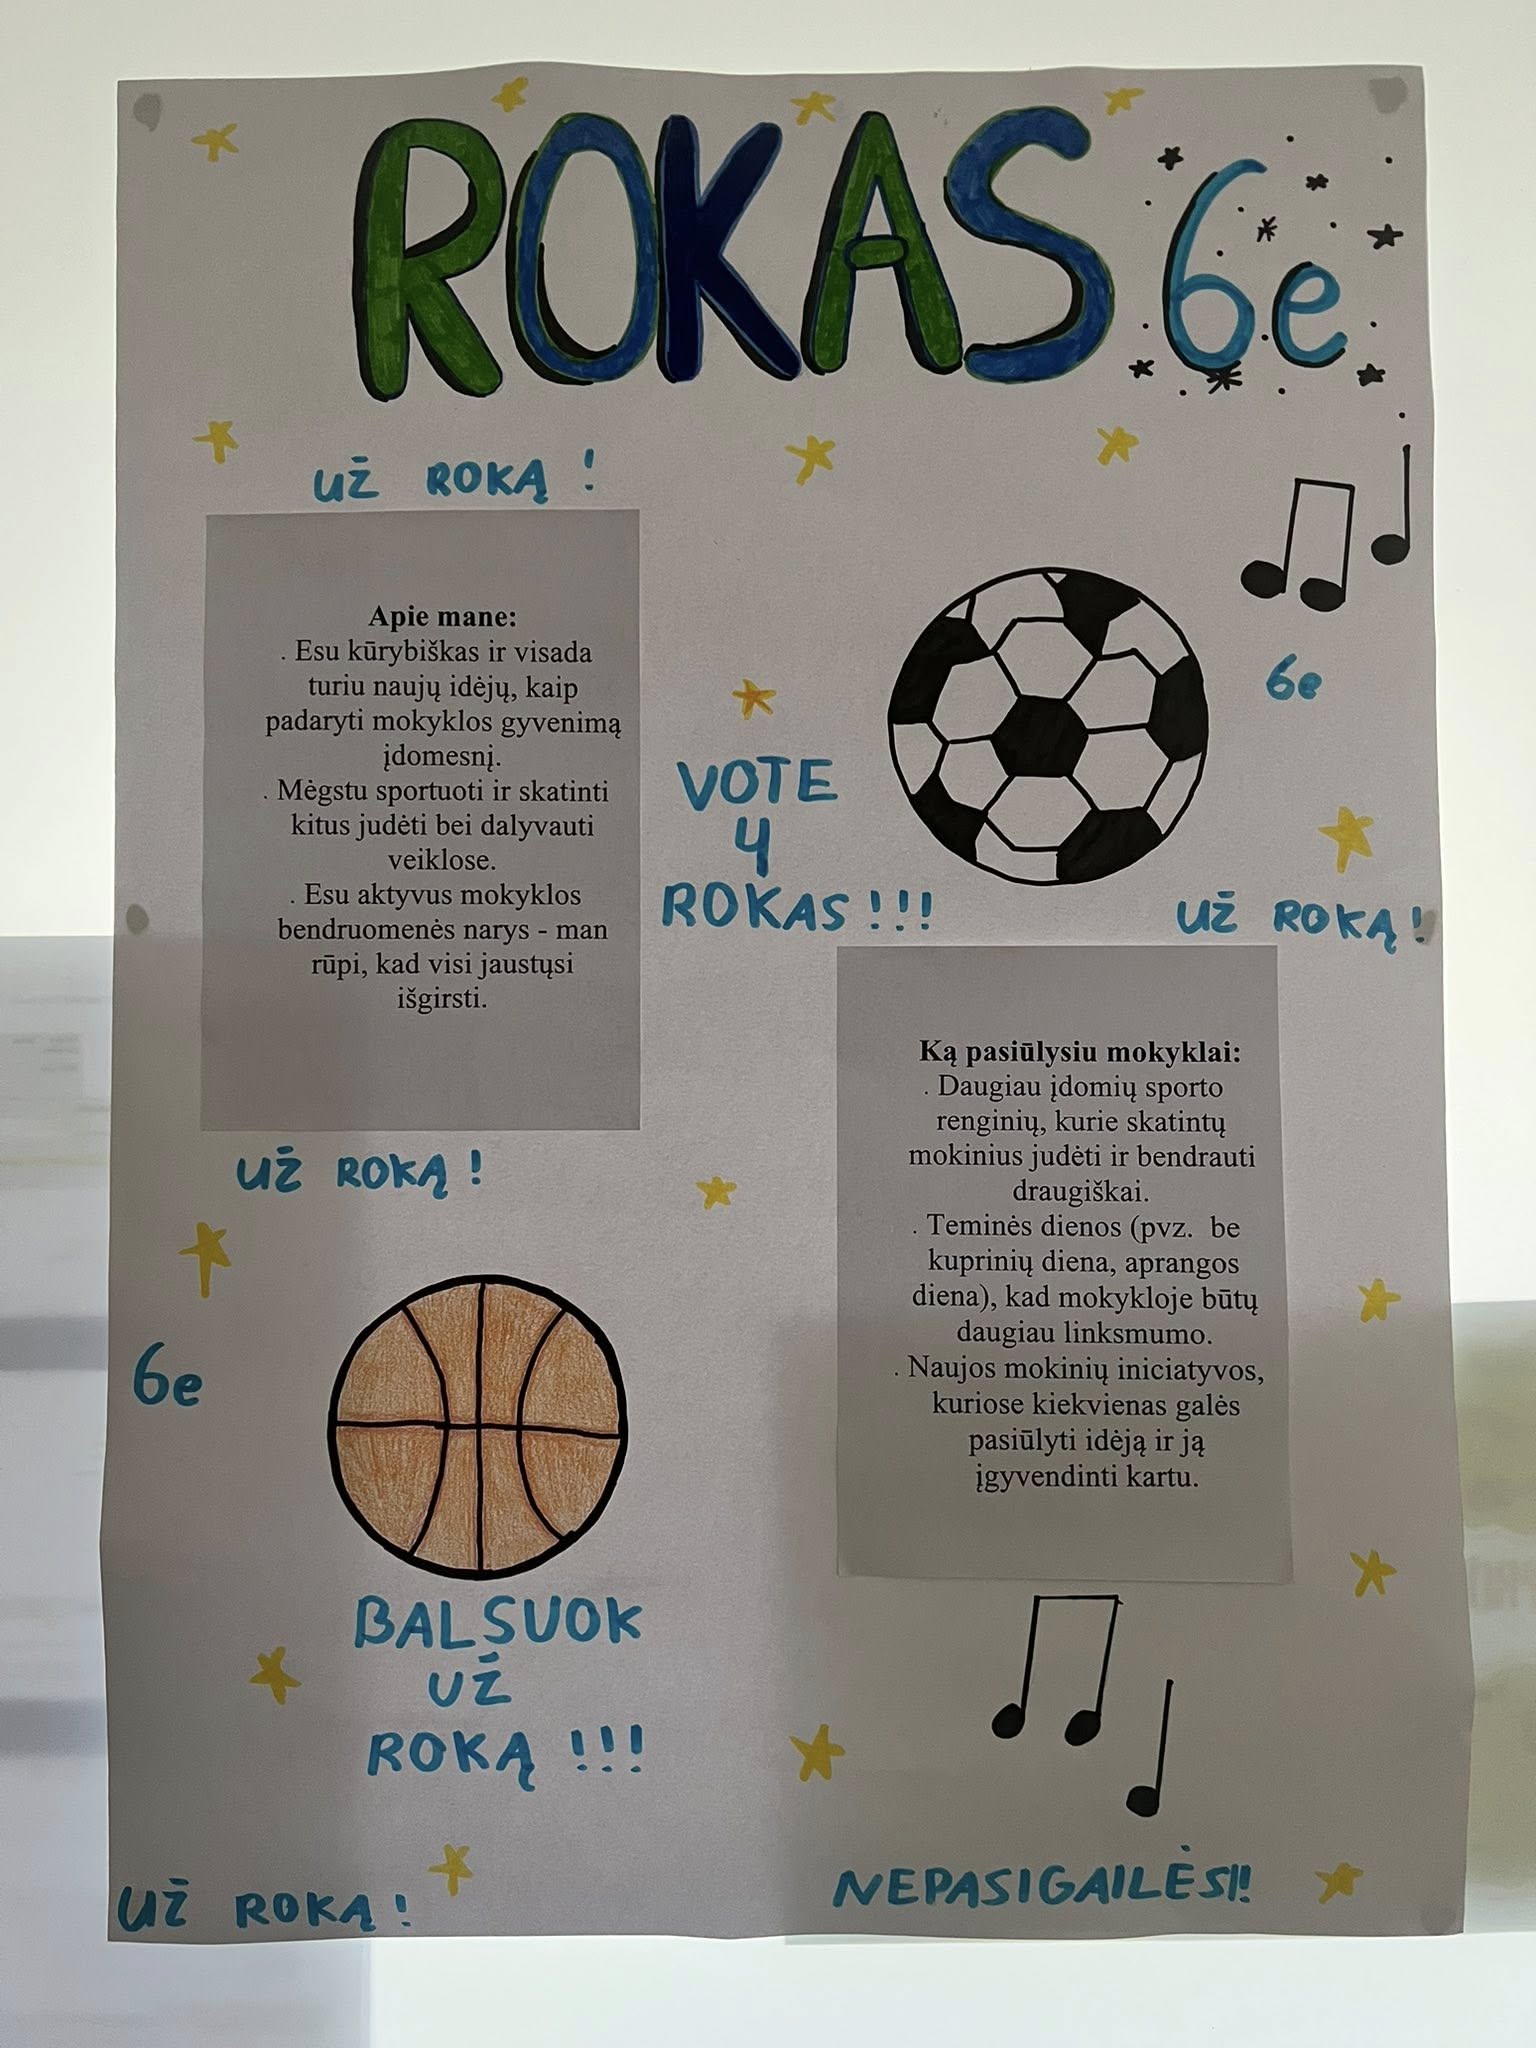 ROKAS 6e
UŽ ROKĄ!
Apie mane:
. Esu kūrybiškas ir visada
turiu naujų idėjų, kaip
padaryti mokyklos gyvenimą
įdomesnį.
. Mėgstu sportuoti ir skatinti
kitus judėti bei dalyvauti
veiklose.
. Esu aktyvus mokyklos
bendruomenės narys - man
rūpi, kad visi jaustųsi
išgirsti.
6e
VOTE
4
ROKAS!!!
UŽ ROKĄ!
Ką pasiūlysiu mokyklai:
. Daugiau įdomių sporto
renginių, kurie skatintų
mokinius judėti ir bendrauti
draugiškai.
. Teminės dienos (pvz. be
kuprinių diena, aprangos
diena), kad mokykloje būtų
daugiau linksmumo.
. Naujos mokinių iniciatyvos,
kuriose kiekvienas galės
pasiūlyti idėją ir ją
įgyvendinti kartu.
UŽ ROKĄ!
6e
BALSUOK
UŽ
ROKĄ!!!
UŽ ROKĄ!
NEPASIGAILĖSI!!